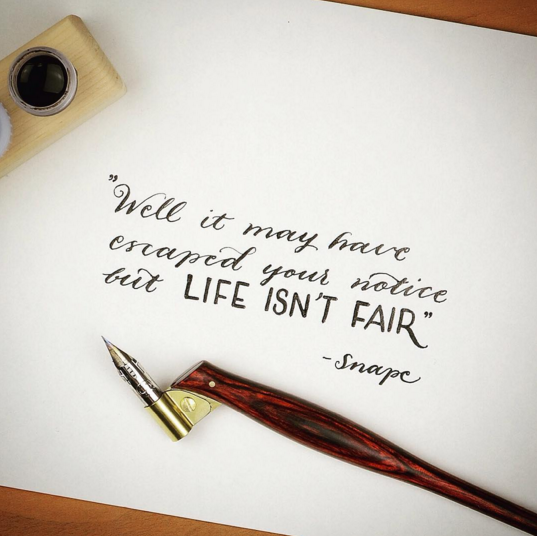 "Well it may have
escaped your notice
but LIFE ISN'T FAIR"
-Snape